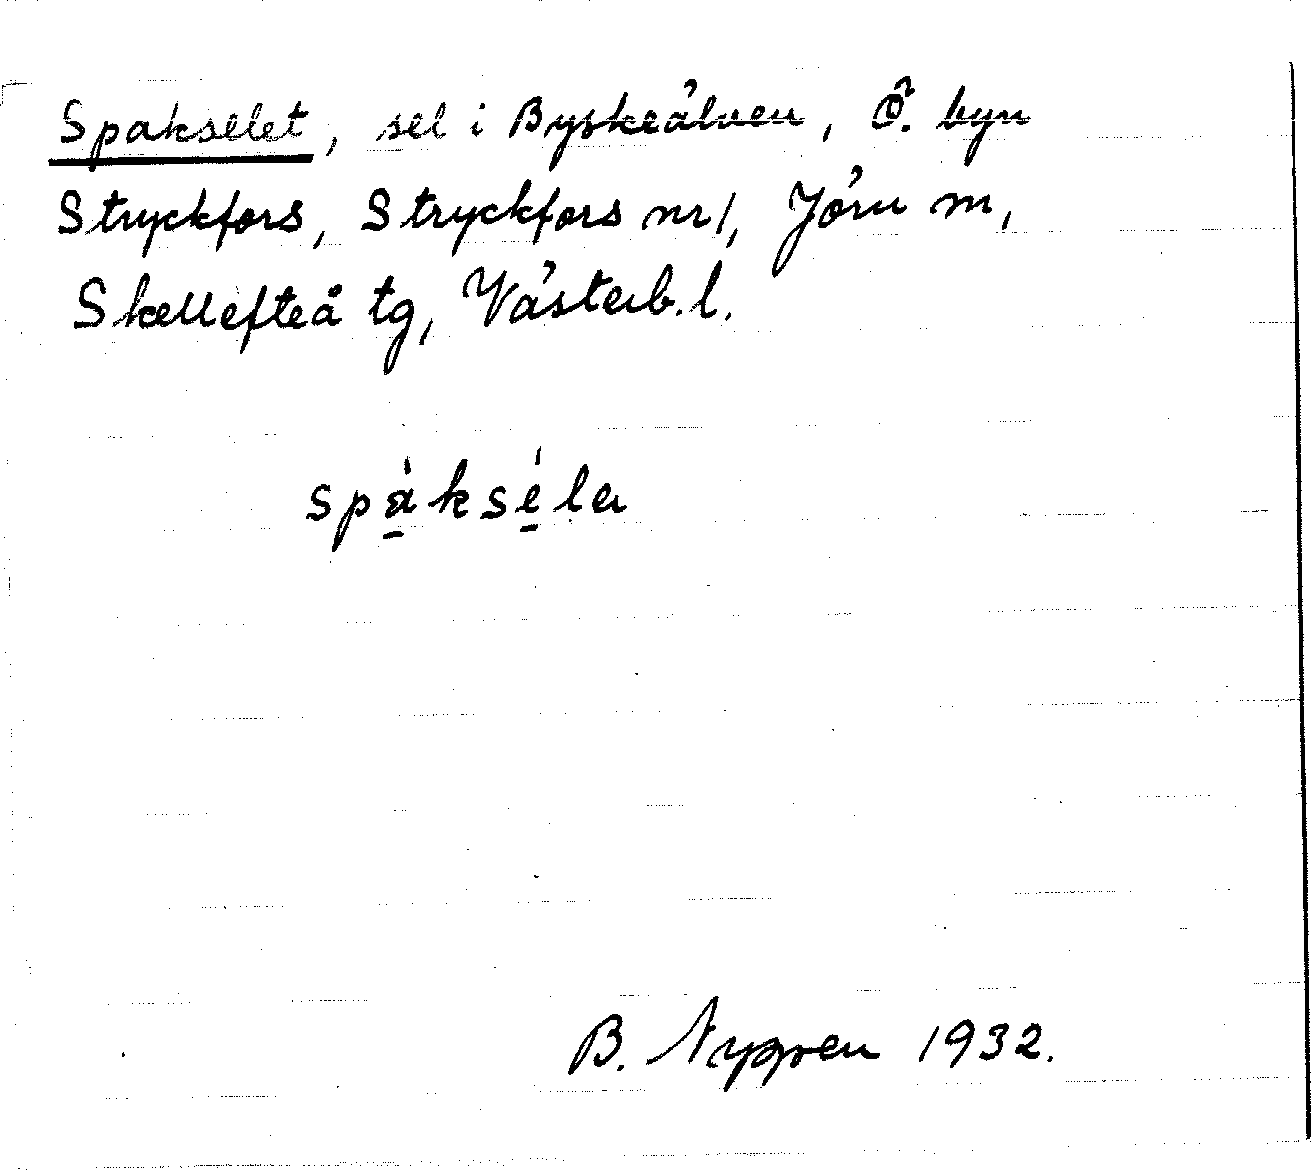 Spakselet, sel i Byskeälven, Ö. byn
Stryckfors, Stryckfors nr 1, Jörn m,
Skellefteå tg, Västerb. l.
spà̱ksé̱la
B. Nygren 1932.